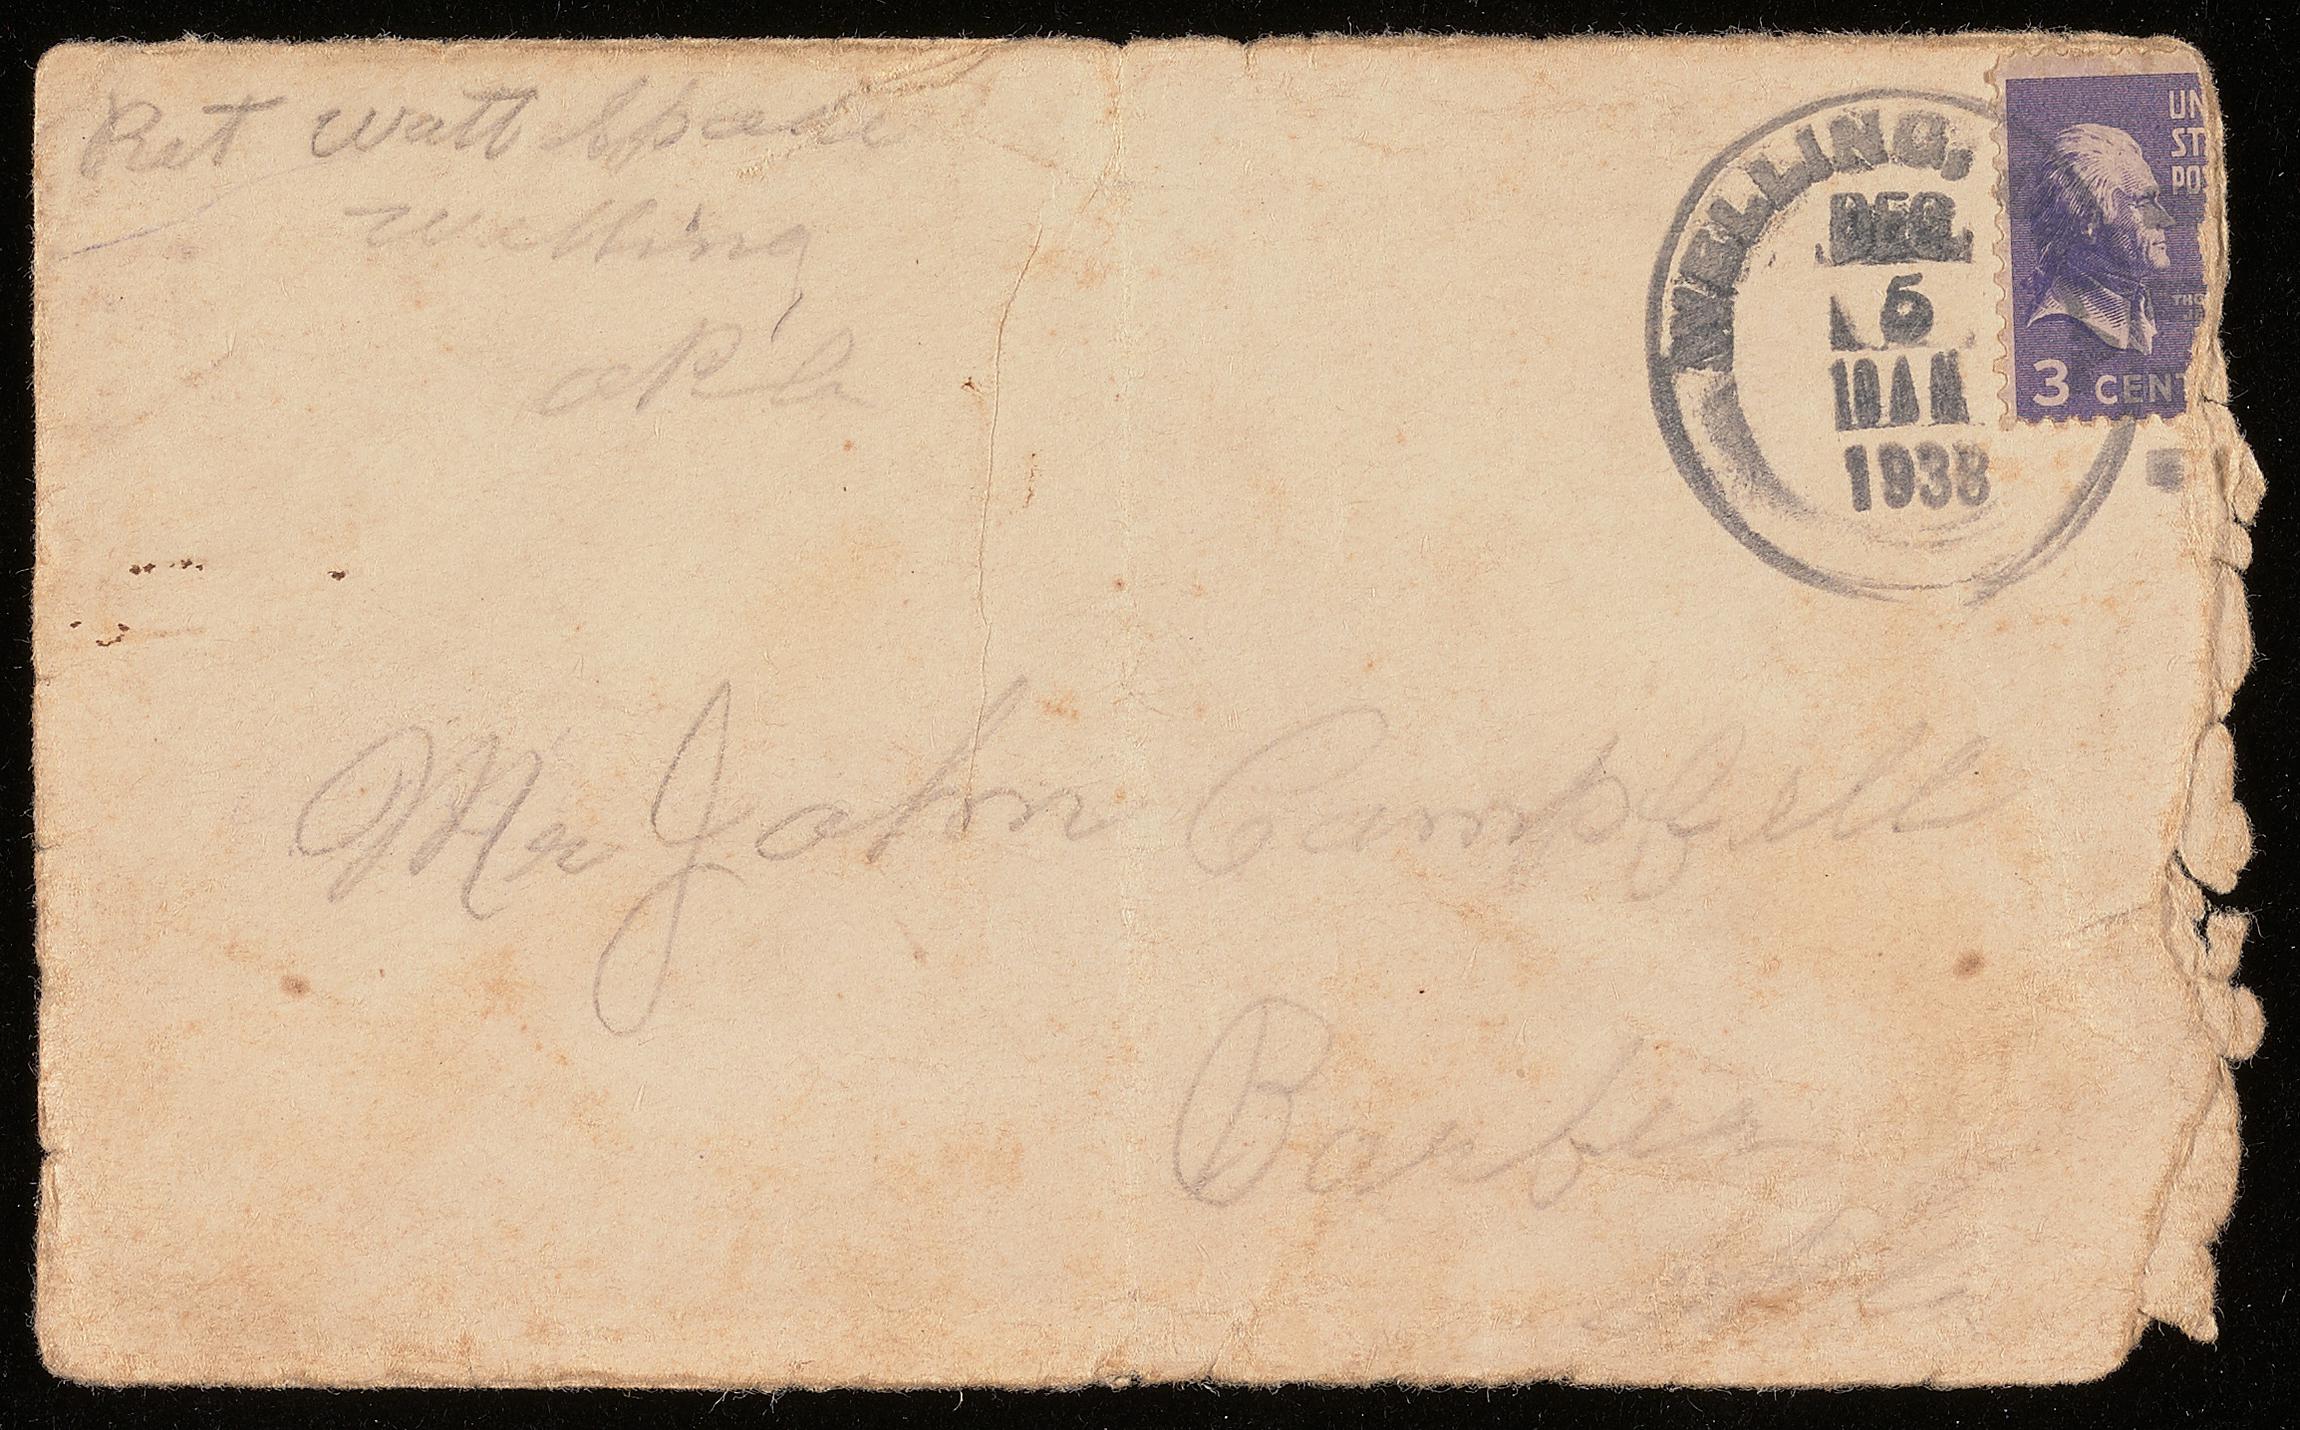 Ret Watt Spade
Welling
okla
WELLING,
DEC
5
10 AM
1938
UN
ST
POS
THO
3 CENT
Mr John Campbell
Barber